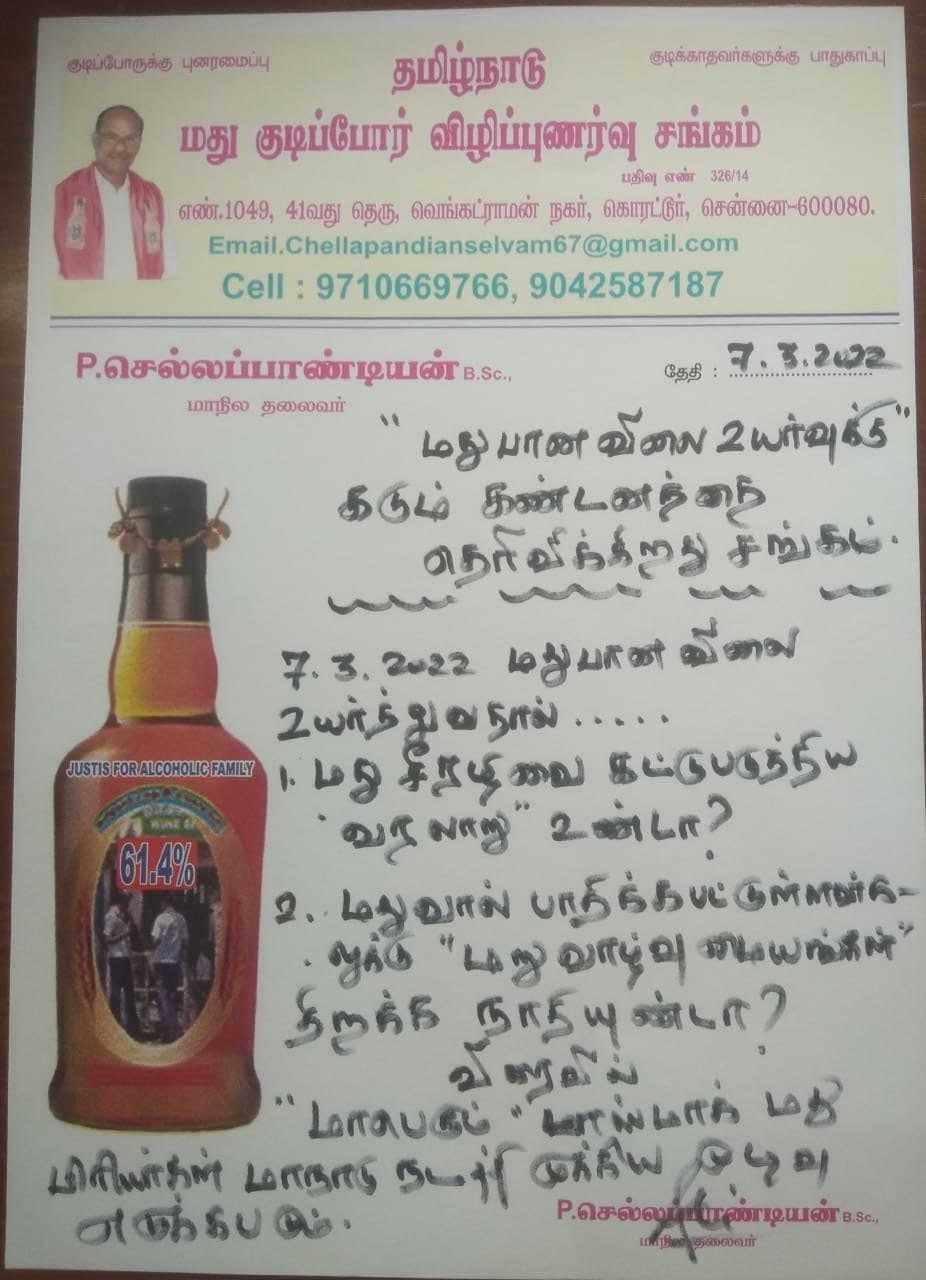 குடிப்போருக்கு புனரமைப்பு
குடிக்காதவர்களுக்கு பாதுகாப்பு
தமிழ்நாடு
மது குடிப்போர் விழிப்புணர்வு சங்கம்
பதிவு எண் 326/14
எண்.1049, 41வது தெரு, வெங்கட்ராமன் நகர், கொரட்டூர், சென்னை-600080.
Email.Chellapandianselvam67@gmail.com
Cell : 9710669766, 9042587187
P.செல்லப்பாண்டியன் B.Sc.,
மாநில தலைவர்
தேதி : 7.3.2022
"மதுபான விலை உயர்வுக்கு"
கடும் கண்டனத்தை
தெரிவிக்கிறது சங்கம்.
7.3.2022 மதுபான விலை
உயர்த்துவதால் .....
1. மது சீரழிவை கட்டுபடுத்திய
"வரலாறு" உண்டா?
2. மதுவால் பாதிக்கபட்டுள்ளவர்க-
ளுக்கு "மறுவாழ்வு மையங்கள்"
திறக்க நாதியுண்டா?
விரைவில்
"மாபெரும்" மது
பிரியர்கள் மாநாடு நடத்தி முக்கிய முடிவு
எடுக்கபடும்.
JUSTIS FOR ALCOHOLIC FAMILY
WINE
61.4%
P.செல்லப்பாண்டியன் B.Sc.,
மாநில தலைவர்